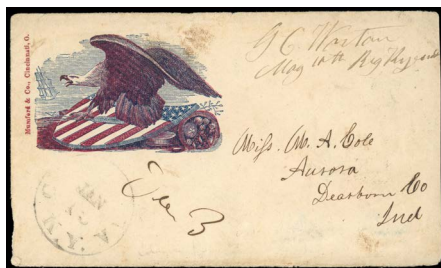 Mumford & Co., Cincinnati, O.
G C
Maj 10th Reg
Miss. M. A. Cole
Aurora
Dearborn Co
Ind
Due 3
JAN